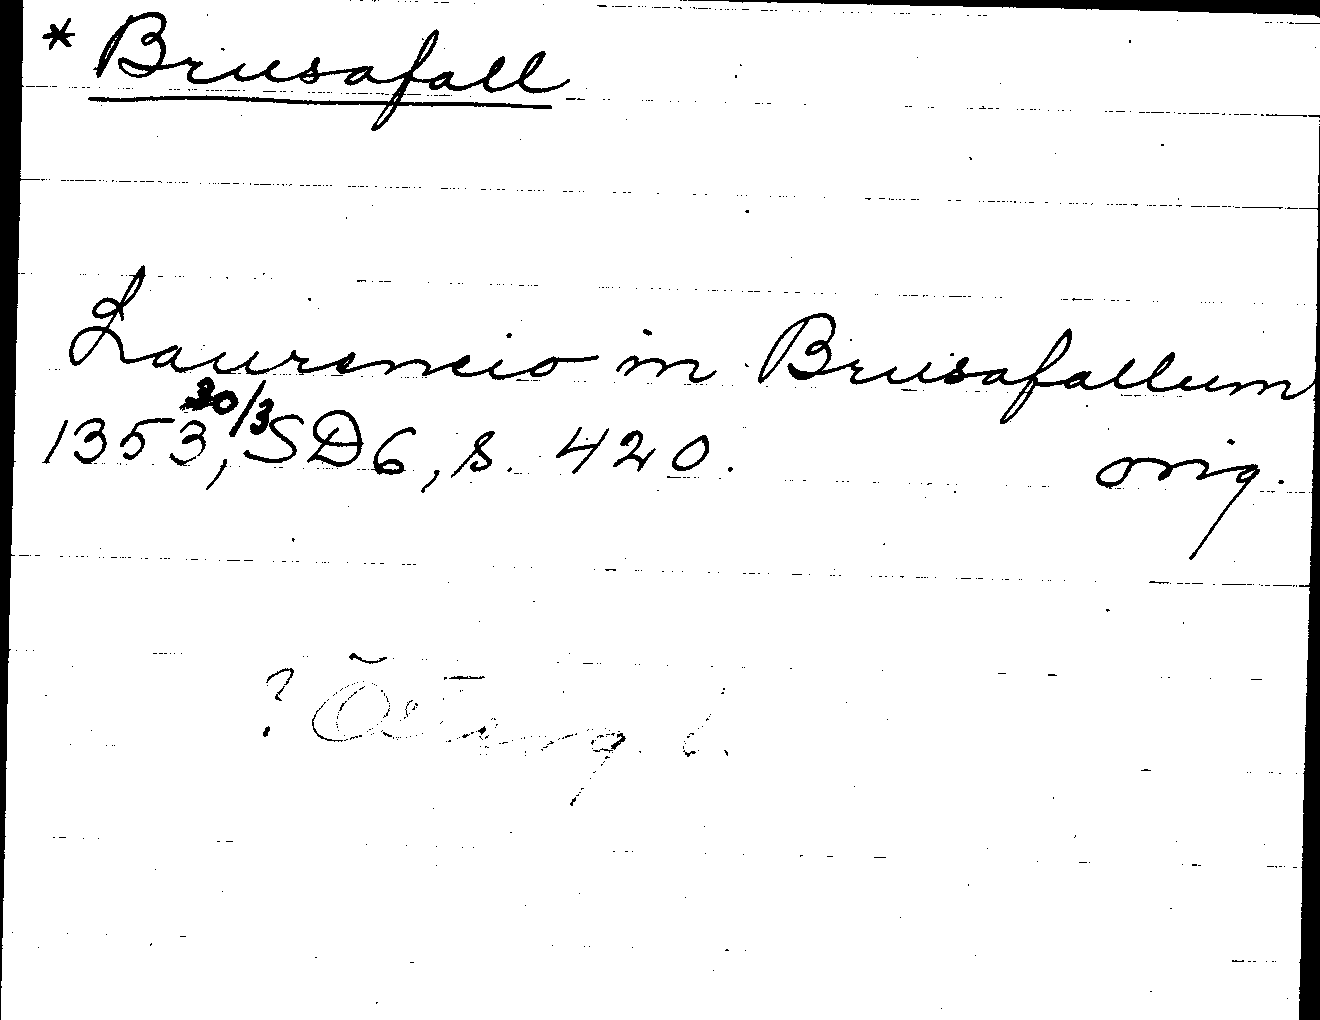 * Brusafall
Laurencio in Brusafallum
1353 30/3, SD6, s. 420. orig.
?